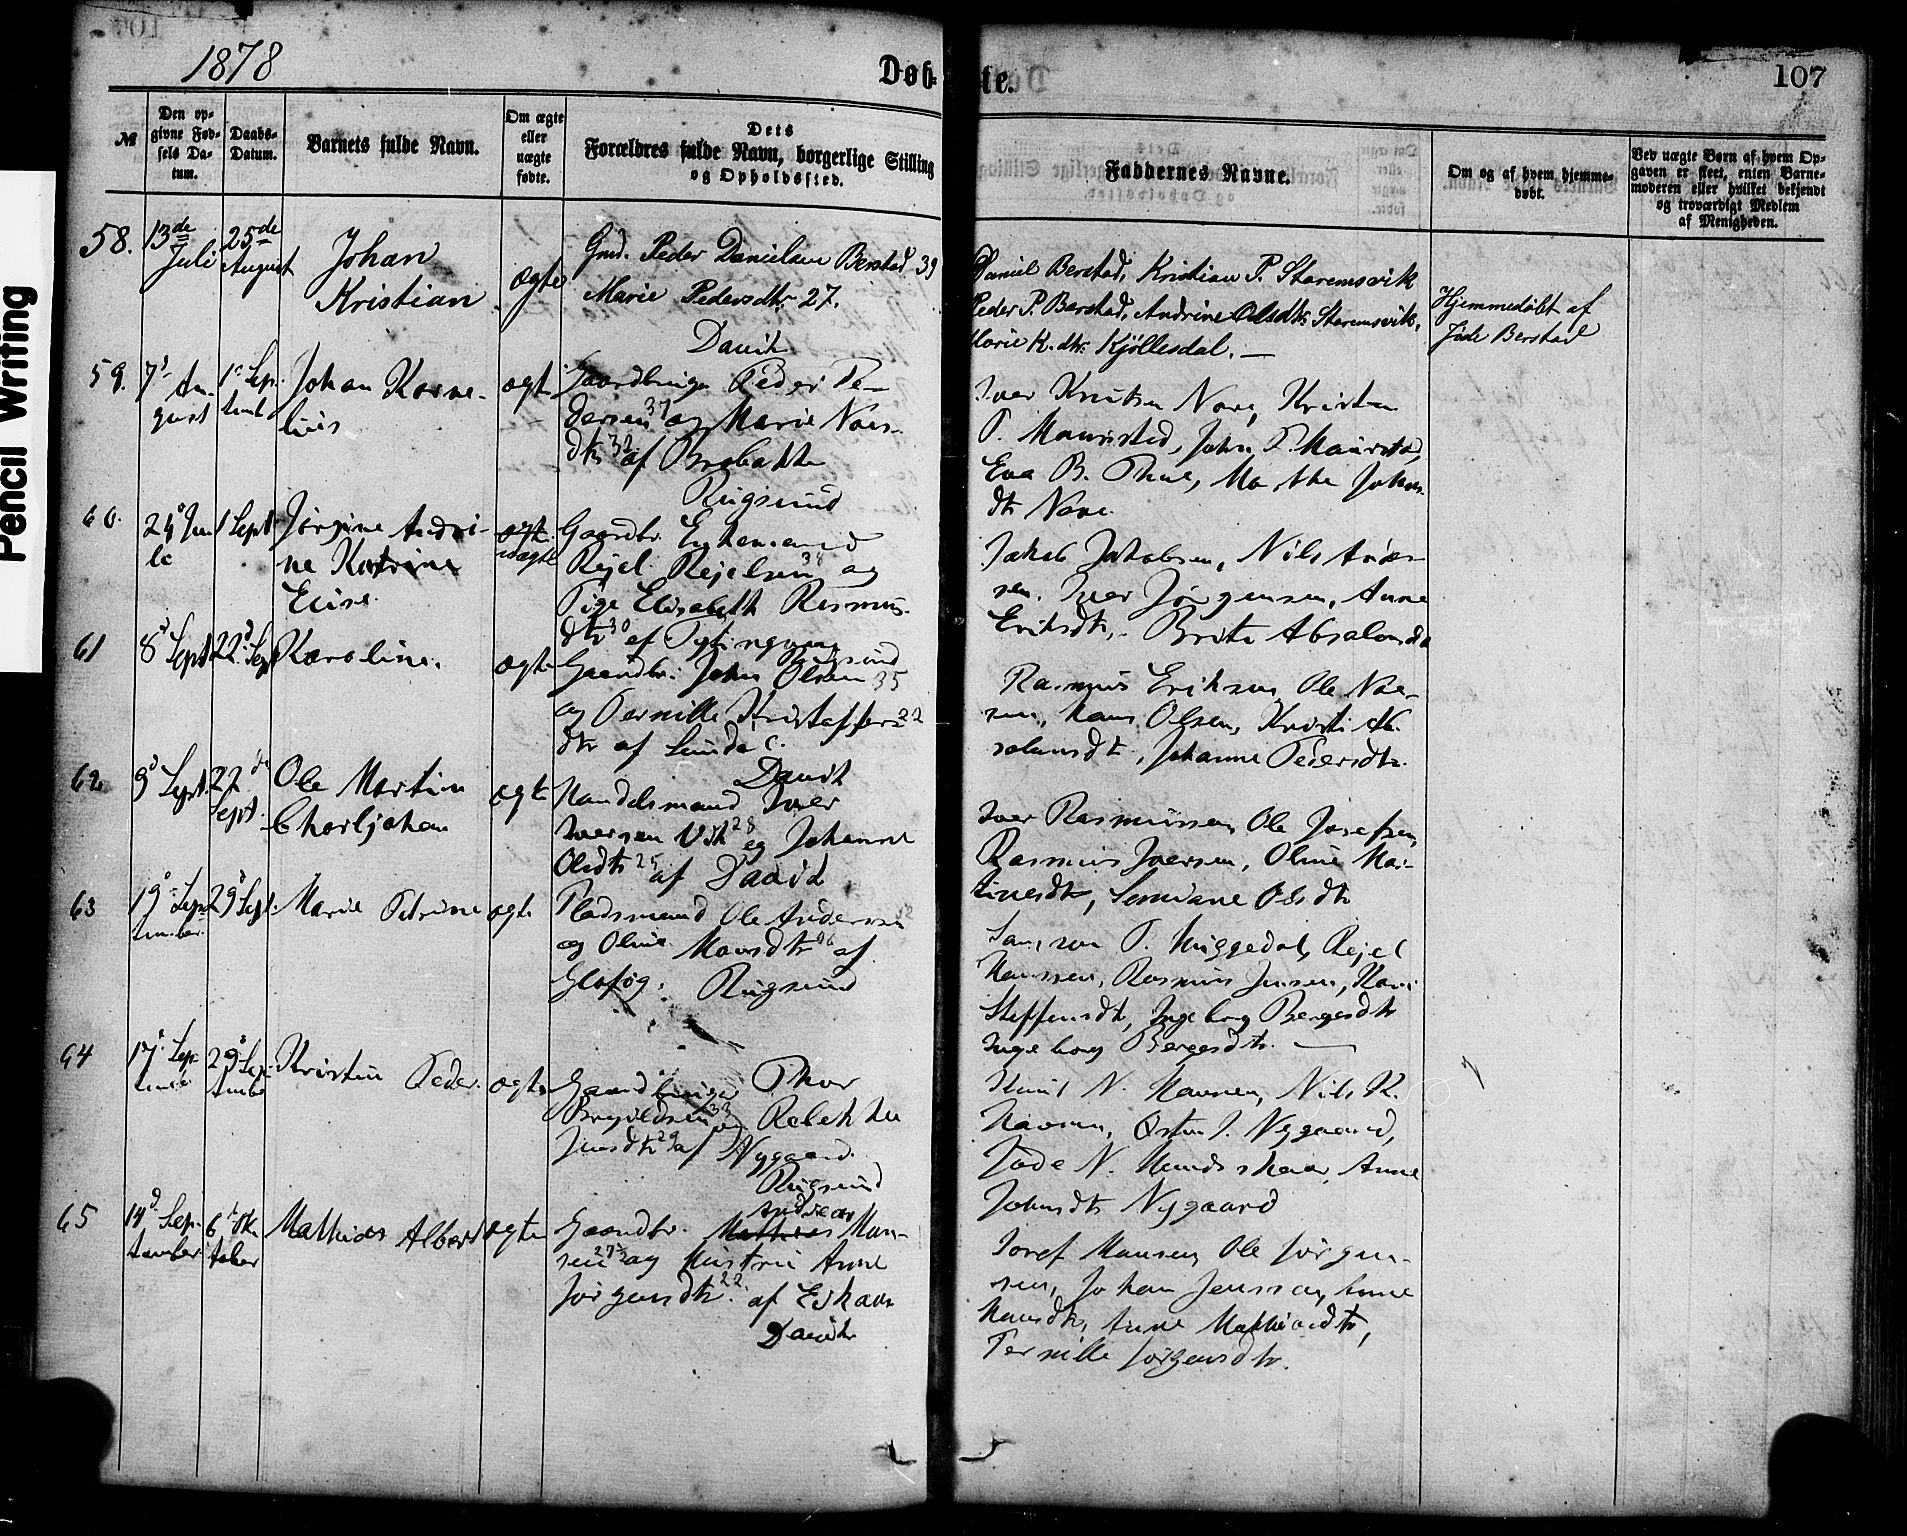 1878
Døb-
te.
107
Pencil Writing
№
Den op-
givne Fød-
sels Da-
tum.
Daabs-
Datum.
Barnets fulde Navn.
Om ægte
eller
uægte
fødte.
Dets
Forældres fulde Navn, borgerlige Stilling
og Opholdssted.
Faddernes Navne.
Om og af hvem hjemme-
døbt.
Ved uægte Børn af hvem Op-
gaven er skeet, enten Barne-
moderen eller hvilket bekjendt
og troværdigt Medlem
af Menigheden.
58.
13de
Juli
25de
August
Johan
Kristian
ægte
Gmd. Peder Danielsen Berstad 39
Marie Pedersdtr 27.
Davik
Daniel Berstad, Kristian P. Staremsvik
Peder P. Berstad, Andrine Olsdtr Staremsvik,
Marie K. dtr Kjøllesdal. —
Hjemmedøbt af
Jade Berstad
59.
7d Au-
gust
1d Sep-
temb
Johan Korne-
lius
ægte
Gaardbruger Peder Pe-
dersen 37 og Marie
dtr 32 af
Rugsund
Iver Knutsen Nore, Kristen
P. Maurstad, John P. Maurstad,
Eva B. Marthe Johans-
dtr Nore.
60.
24d Ju-
1 Sept.
Jørgine Andri-
ne Katrine
Elise.
ægte
uægte
Gaardbr. Enkemand
Rejel Rejelsen 38 og
Pige Elisabeth Rasmus-
dtr 30 af
Rugsund
Jakob Jakobsen, Nils
sen, Iver Jørgensen, Anne
Eriksdtr, Brite Absalonsdtr
61
8d Sept
22d Sept
Karoline.
ægte
Gaardbr. John Olsen 35
og Pernille Kristoffers 22
dtr af Lunde
Davik
Rasmus Eriksen, Ole
sen, Hans Olsen, Kristi Ab-
salonsdtr, Johanne Pedersdtr.
62
9d Sept.
22de
Sept.
Ole Martin
Charljohan
ægte
Handelsmand Iver
Iversen Vik 28 og Johanne
Olsdtr 25 af Davik
Iver Rasmussen, Ole Josefsen,
Rasmus Iversen, Oline Mar-
tinesdtr, Olsdtr
63
19d Sep-
tember
29d Sept.
Marie Petrine
ægte
Pladsmand Ole Andersen
og Oline Monsdtr 46 af
Rugsund
Samson P. Rejel
Hansen, Rasmus Jensen, Kari
Steffensdtr, Ingeborg Bergesdtr
Ingeborg Bergesdtr. —
64
17d Sep-
29d Sep-
tember
Kristen Peder.
ægte
Gaardbruger Thor
33 og Rebekka
Jensdtr 29 af Nygaard.
Rugsund
Knut N. Hansen, Nils K.
Hansen, Østen J. Nygaard,
Jade N. Anne
Johnsdtr Nygaard
65
14d Sep-
tember
6d Ok-
tober
Mathias Albert
ægte
Andreas
Gaardbr. Mathias Han-
sen 27 og Hustru Anne
Jørgensdtr 22 af
Davik
Josef Hansen, Ole Jørgen-
sen, Johan Jensen, Anne
Hansdtr, Anne Mathiasdtr,
Pernille Jørgensdtr.